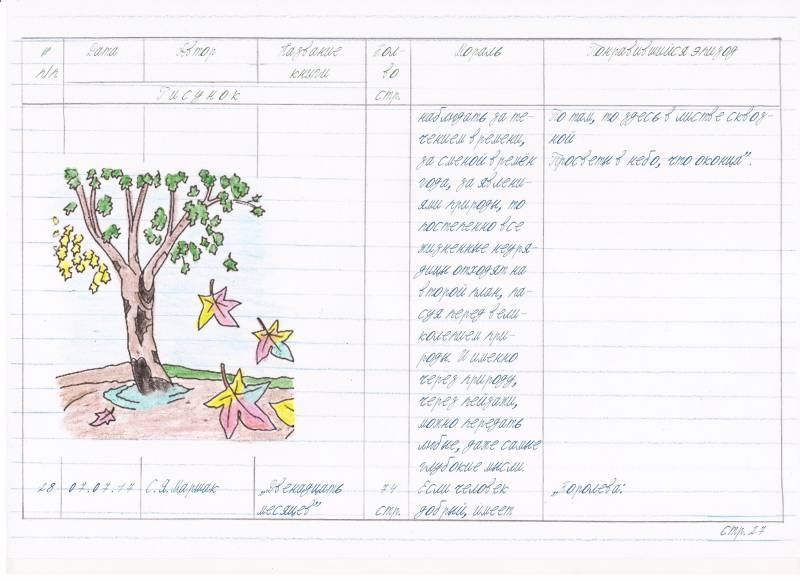 № п/п
Дата
Автор
Название
книги
Кол-
во
стр.
Мораль
Понравившийся эпизод
Рисунок
наблюдать за те-
чением времени,
за сменой времён
года, за явлени-
ями природы, то
постепенно все
жизненные неуря-
дицы отходят на
второй план, па-
суя перед вели-
колепием при-
роды. И именно
через природу,
через пейзажи,
можно передать
любые, даже самые
глубокие мысли.
То там, то здесь в листве сквоз-
ной
Просветы в небо, что оконца".
28
07.07.17
С.Я.Маршак
„Двенадцать
месяцев"
74
стр.
Если человек
добрый, имеет
„Королева:
стр. 27